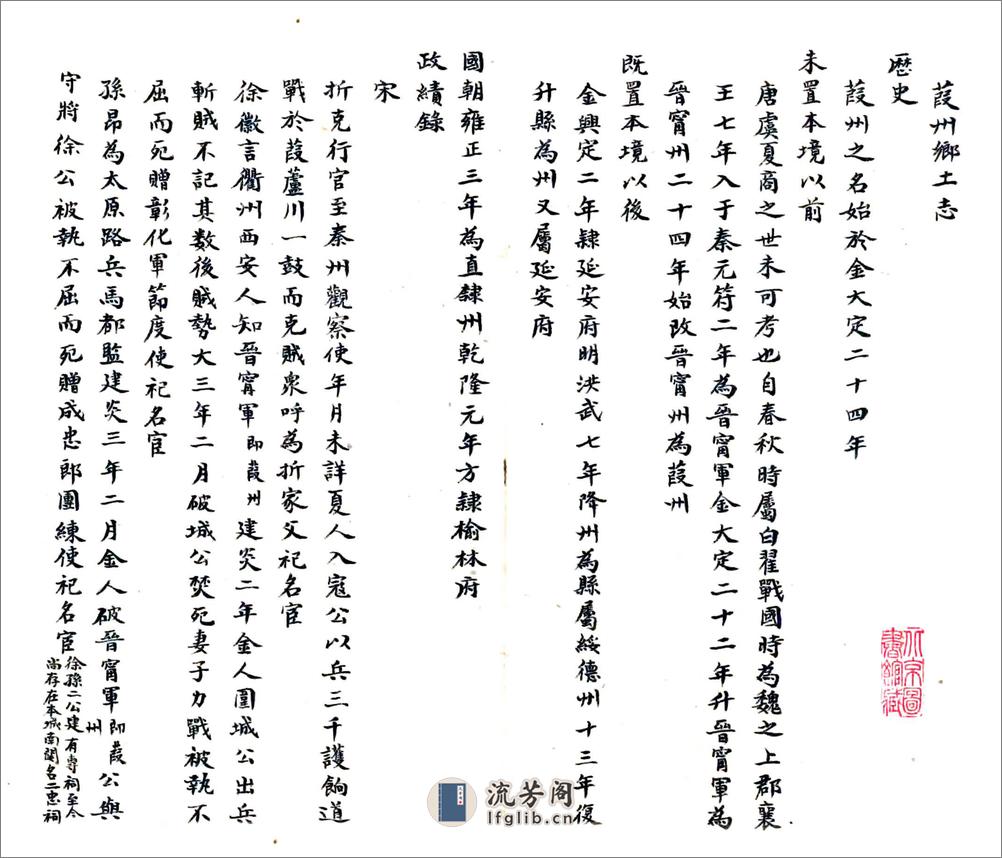 葭州鄉土志
歷史
葭州之名始於金大定二十四年
未置本境以前
唐虞夏商之世未可考也自春秋時屬白翟戰國時為魏之上郡襄
王七年入于秦元符二年為晉甯軍金大定二十二年升晉甯軍為
晉甯州二十四年始改晉甯州為葭州
既置本境以後
金興定二年隸延安府明洪武七年降州為縣屬綏德州十三年復
升縣為州又屬延安府
國朝雍正三年為直隸州乾隆元年方隸榆林府
政績錄
宋
折克行官至秦州觀察使年月未詳夏人入寇公以兵三千護餉道
戰於葭蘆川一鼓而克賊衆呼為折家父祀名宦
徐徽言衢州西安人知晉甯軍即葭州建炎二年金人圍城公出兵
斬賊不記其數後賊勢大三年二月破城公焚死妻子力戰被執不
屈而死贈彰化軍節度使祀名宦
孫昂為太原路兵馬都監建炎三年二月金人破晉甯軍即葭州公與
守將徐公被執不屈而死贈成忠郎團練使祀名宦徐孫二公建有專祠至今尚存在本城南關名二忠祠
北京圖書館藏
流芳阁
lfglib.cn